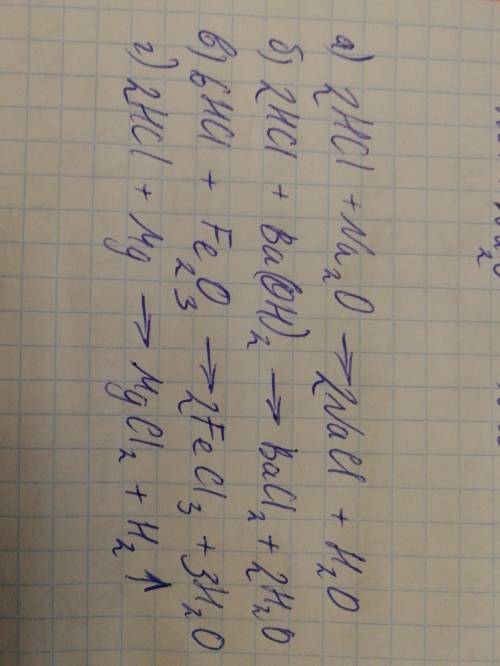 а) 2HCl + Na₂O → 2NaCl + H₂O
б) 2HCl + Ba(OH)₂ → BaCl₂ + 2H₂O
в) 6HCl + Fe₂O₃ → 2FeCl₃ + 3H₂O
г) 2HCl + Mg → MgCl₂ + H₂↑